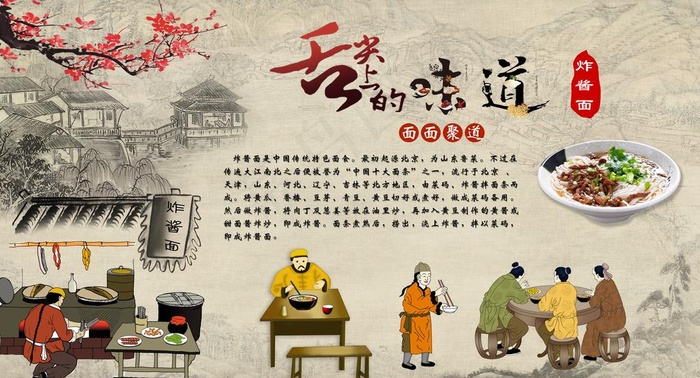 舌尖上的味道
炸酱面
面面聚道
炸酱面是中国传统特色面食。最初起源北京，为山东鲁菜。不过在
传遍大江南北之后便被誉为“中国十大面条”之一，流行于北京、
天津，山东、河北、辽宁、吉林等北方地区，由菜码、炸酱拌面条而
成。将黄瓜、香椿、豆芽、青豆、黄豆切好或煮好，做成菜码备用。
然后做炸酱，将肉丁及葱姜等放在油里炒，再加入黄豆制作的黄酱或
甜面酱炸炒，即成炸酱。面条煮熟后，捞出，浇上炸酱，拌以菜码，
即成炸酱面。
炸酱面